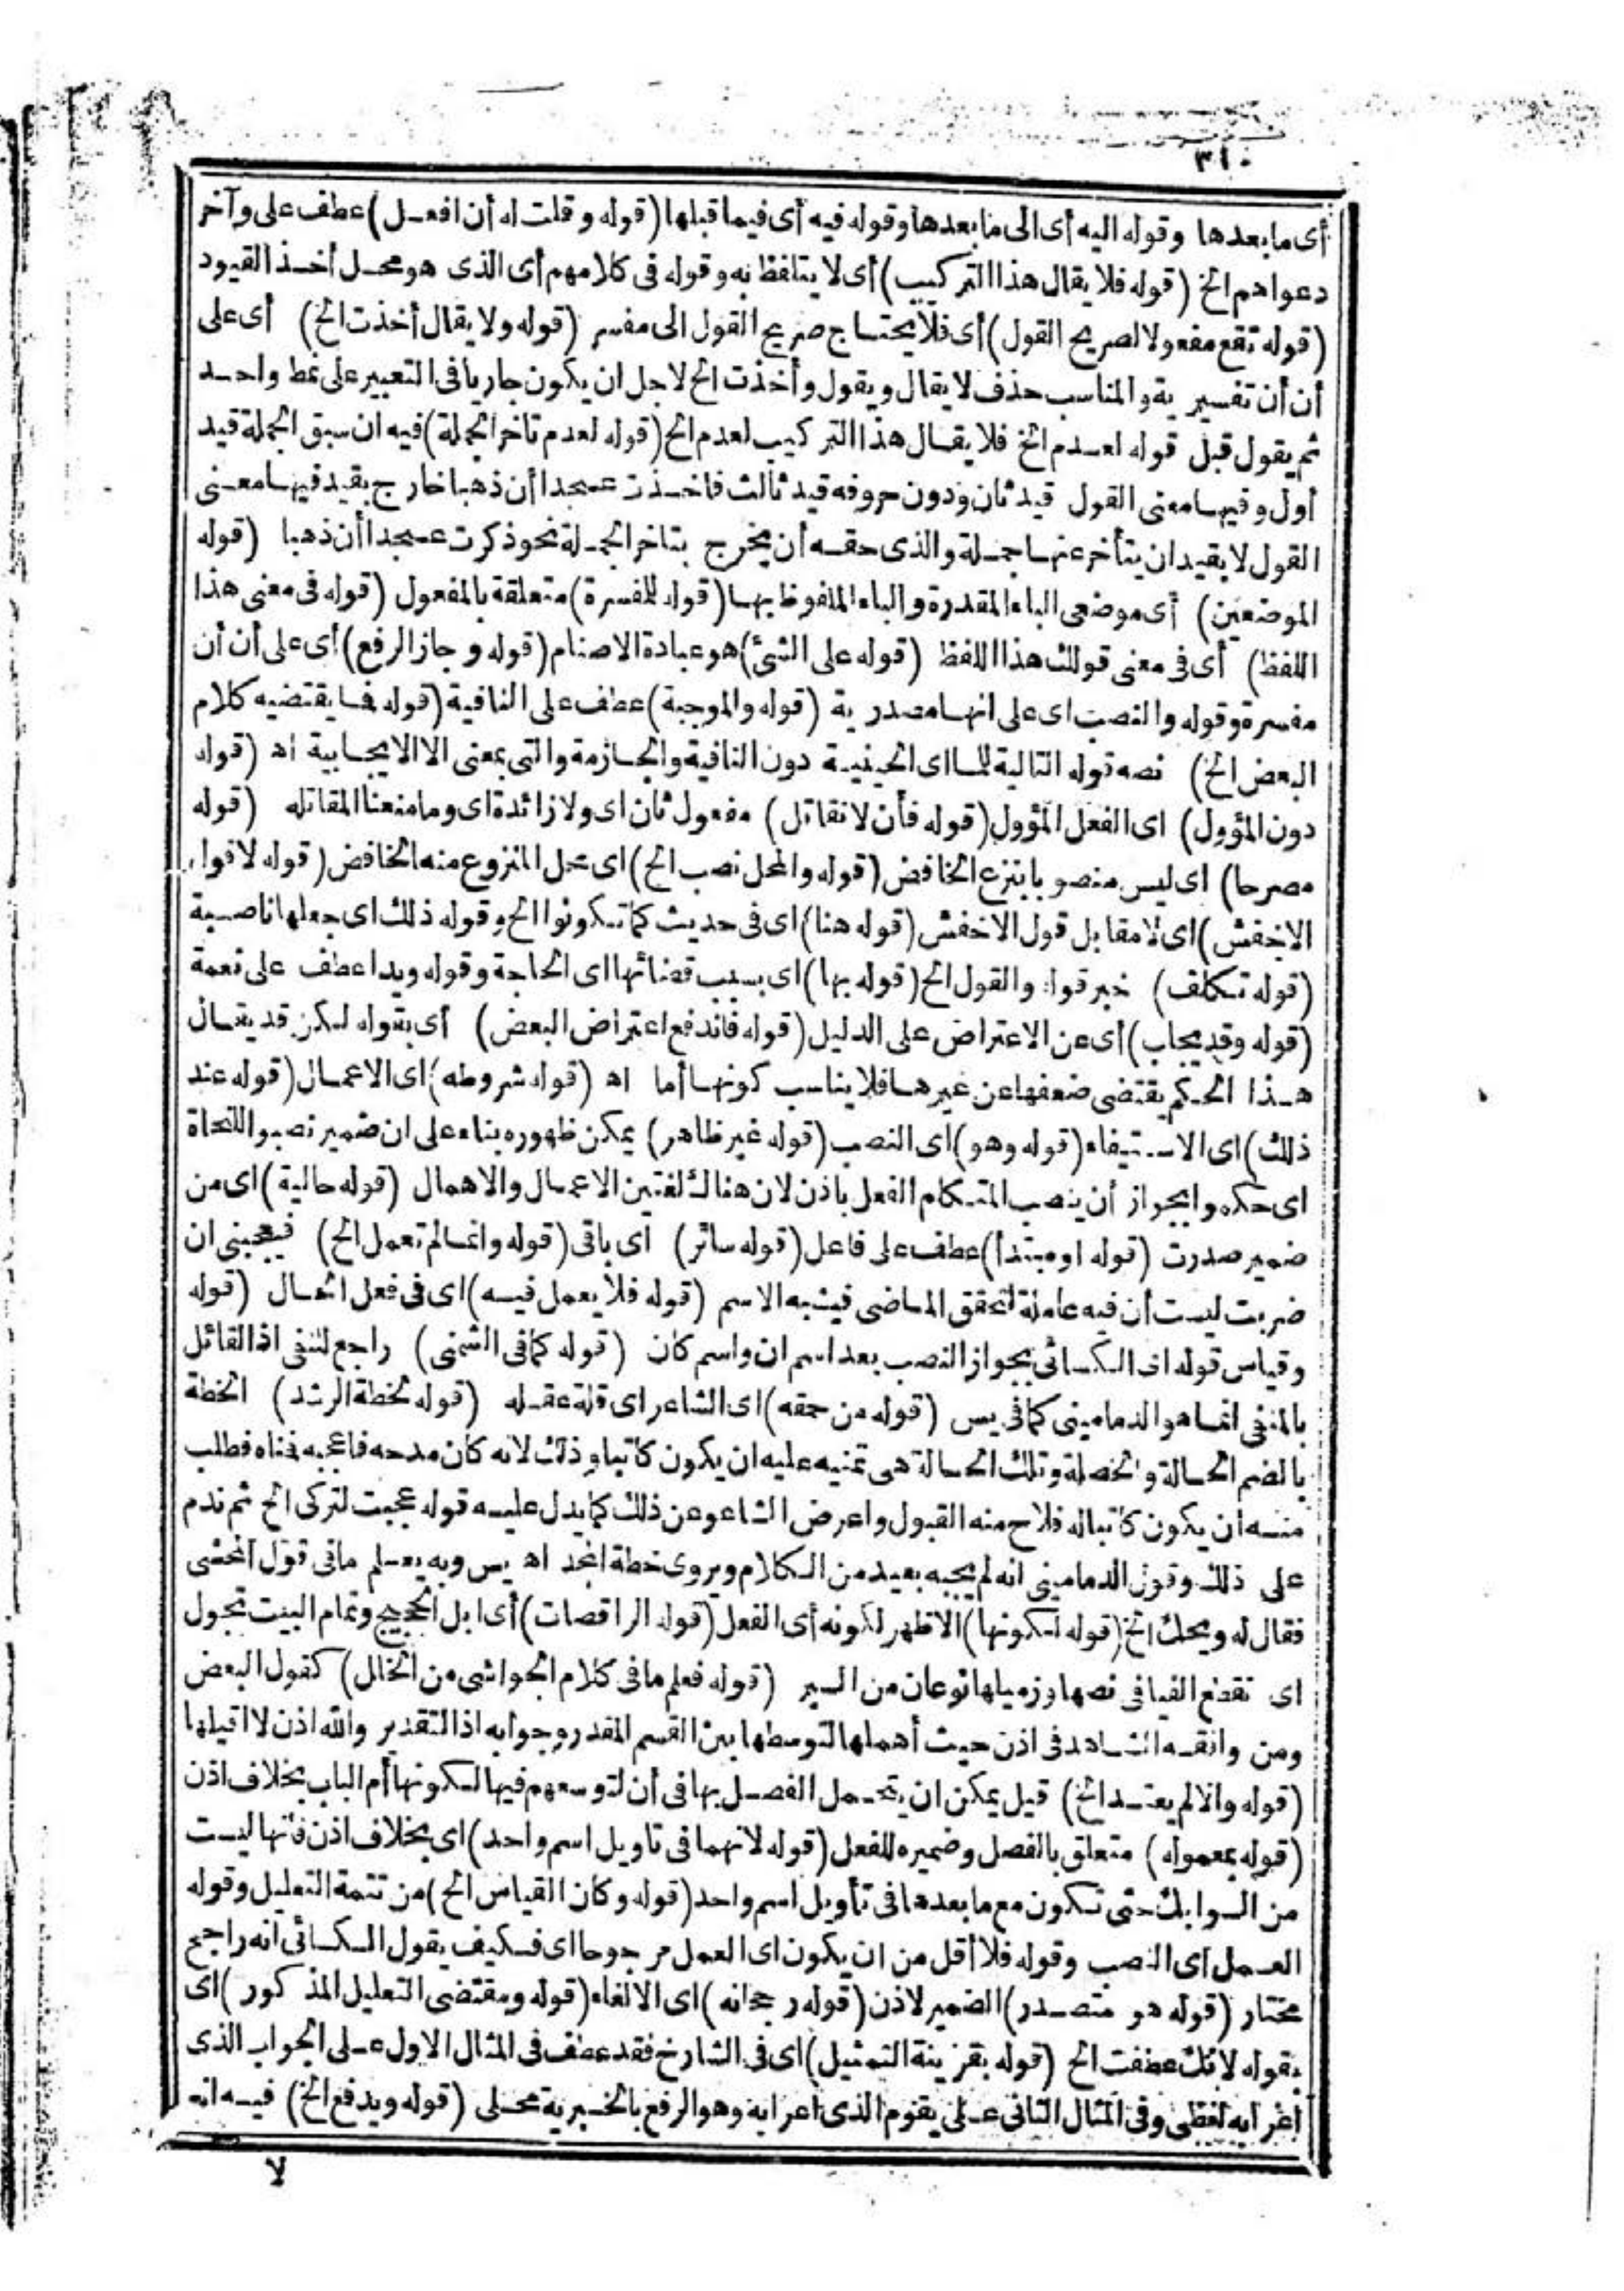 ٣١٠
أى ما بعدها وقوله اليه أى الى ما بعدها وقوله فيه أى فيما قبلها (قوله وقلت له أن افعل) عطف على وآخر
دعواهم الخ (قوله فلا يقال هذا التركيب) أى لا يتلفظ به وقوله فى كلامهم أى الذى هو محل أخذ القيود
(قوله تقع مفعولا لصريح القول) أى فلا يحتاج صريح القول الى مفسر (قوله ولا يقال أخذت الخ) أى على
أن أن تفسيرية والمناسب حذف لا يقال ويقول وأخذت الخ لاجل ان يكون جاريا فى التعبير على نمط واحد
ثم يقول قبل قوله لعدم الخ فلا يقال هذا التركيب لعدم الخ (قوله لعدم تاخر الجملة) فيه ان سبق الجملة قيد
أول وفيها معنى القول قيد ثان ودون حروفه قيد ثالث فاخذت عسجدا أن ذهبا خارج بقيد فيها معنى
القول لا بقيد ان يتأخر عنها جملة والذى حقه أن يخرج بتاخر الجملة نحو ذكرت عسجدا أن ذهبا (قوله
الموضعين) أى موضعى الباء المقدرة والباء الملفوظ بها (قوله للمفسرة) متعلقة بالمفعول (قوله فى معنى هذا
اللفظ) أى فى معنى قولك هذا اللفظ (قوله على الشئ) هو عبادة الاصنام (قوله وجاز الرفع) أى على أن أن
مفسرة وقوله والنصب اى على انها مصدرية (قوله والموجبة) عطف على النافية (قوله فما يقتضيه كلام
البعض الخ) نصه قوله التالية للما اى الحينية دون النافية والجازمة والتى بمعنى الا الايجابية اه (قوله
دون المؤول) اى الفعل المؤول (قوله فأن لا نقاتل) مفعول ثان اى ولا زائدة اى وما منعنا المقاتله (قوله
مصرحا) اى ليس منصوبا بنزع الخافض (قوله والمحل نصب الخ) اى محل المنزوع منه الخافض (قوله لا قول
الاخفش) اى لا مقابل قول الاخفش (قوله هنا) اى فى حديث كما تكونوا الخ وقوله ذلك اى جعلها ناصبة
(قوله تكلف) خبر قوله والقول الخ (قوله بها) اى بسبب قضائها اى الحاجة وقوله ويدا عطف على نعمة
(قوله وقد يجاب) أى عن الاعتراض على الدليل (قوله فاندفع اعتراض البعض) أى بقوله لكن قد يقال
هذا الحكم يقتضى ضعفها عن غيرها فلا يناسب كونها أما اه (قوله شروطه) اى الاعمال (قوله عند
ذلك) اى الاستيفاء (قوله وهو) اى النصب (قوله غير ظاهر) يمكن ظهوره بناء على ان ضمير نصبوا للنحاة
اى حكموا بجواز أن ينصب المتكلم الفعل باذن لان هنالك لغتين الاعمال والاهمال (قوله حالية) اى من
ضمير صدرت (قوله او مبتدأ) عطف على فاعل (قوله سائر) أى باقى (قوله وانما لم تعمل الخ) فيعجبنى ان
ضربت ليست أن فيه عاملة لتحقق الماضى فيشبه الاسم (قوله فلا يعمل فيه) اى فى فعل الحال (قوله
وقياس قوله اى الكسائى بجواز النصب بعد اسم ان واسم كان (قوله كما فى الشمنى) راجع للنفى اذ القائل
بالمنفى انما هو الدمامينى كما فى يس (قوله من حمقه) اى الشاعر اى قلة عقله (قوله لخطة الرشد) الخطة
بالضم الحالة والخصلة وتلك الحالة هى تمنيه عليه ان يكون كاتبا وذلك لانه كان مدحه فاعجبه فمناه فطلب
منه ان يكون كاتبا له فلاح منه القبول واعرض الشاعر عن ذلك كما يدل عليه قوله عجبت لتركى الخ ثم ندم
على ذلك وقول الدمامينى انه لم يجبه بعيد من الكلام ويروى خطة المجد اه يس وبه يعلم مافى قول المحشى
فقال له ويحك الخ (قوله لكونها) الاظهر لكونه أى الفعل (قوله الراقصات) أى ابل الحجيج وتمام البيت تجول
اى تقطع الفيافى نصها وزميلها نوعان من السير (قوله فعلم مافى كلام الحواشى من الخلل) كقول البعض
ومن وافقه الشاهد فى اذن حيث أهملها لتوسطها بين القسم المقدر وجوابه اذ التقدير والله اذن لا اقيلها
(قوله والا لم يعتد الخ) قيل يمكن ان يتحمل الفصل بها فى أن لتوسعهم فيها لكونها أم الباب بخلاف اذن
(قوله بمعموله) متعلق بالفصل وضميره للفعل (قوله لانهما فى تاويل اسم واحد) اى بخلاف اذن فانها ليست
من السوابك حتى تكون مع ما بعدها فى تأويل اسم واحد (قوله وكان القياس الخ) من تتمة التعليل وقوله
العمل اى النصب وقوله فلا أقل من ان يكون اى العمل مرجوحا اى فكيف يقول الكسائى انه راجح
مختار (قوله هو متصدر) الضمير لاذن (قوله رجحانه) اى الالغاء (قوله ومقتضى التعليل المذكور) اى
بقوله لانك عطفت الخ (قوله بقرينة التمثيل) اى فى الشارح فقد عطف فى المثال الاول على الجواب الذى
اعرابه لفظى وفى المثال الثانى على يقوم الذى اعرابه وهو الرفع بالخبرية محلى (قوله ويدفع الخ) فيه انه
لا